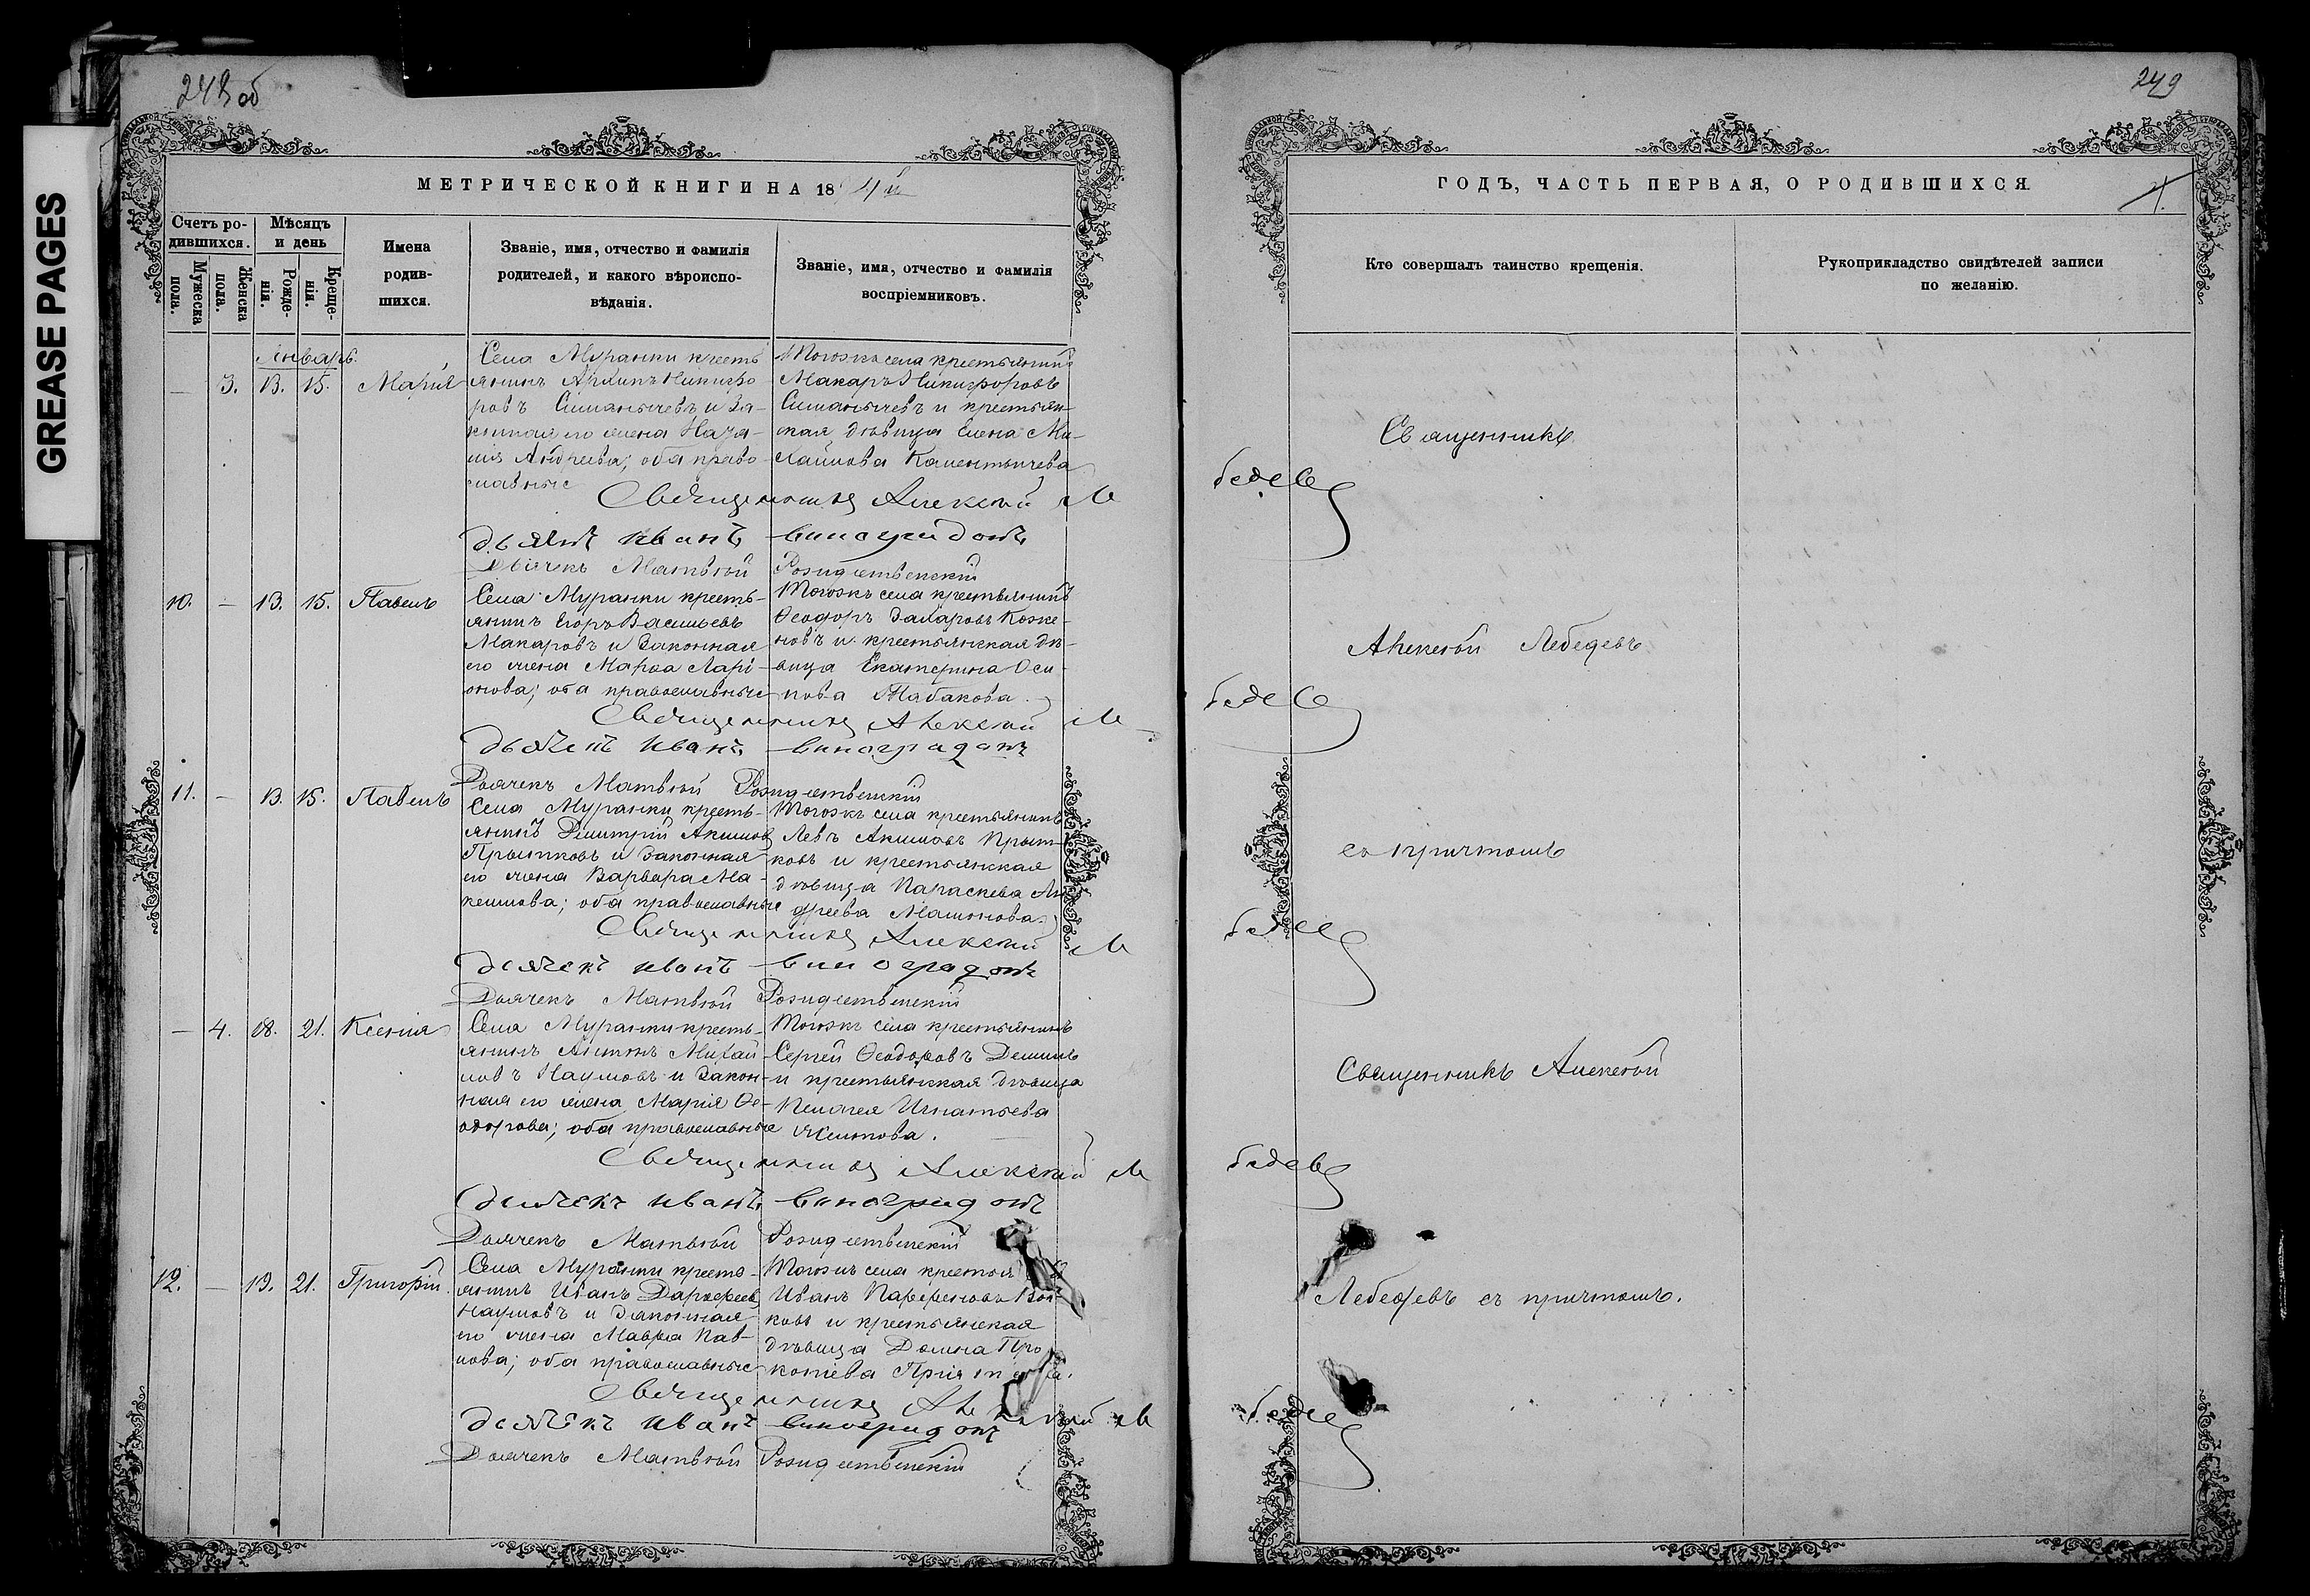 GREASE PAGES
248 об
МЕТРИЧЕСКОЙ КНИГИ НА 18
Счетъ ро-
дившихся.
Мужеска
пола.
Женска
пола.
Мѣсяцъ
и день
Рожде-
нія.
Креще-
нія.
Имена
родив-
шихся.
Званіе, имя, отчество и фамилія
родителей, и какого вѣроиспо-
вѣданія.
Званіе, имя, отчество и фамилія
воспріемниковъ.
Январь.
— 3. 13. 15. Марія
Села Муранки кресть
янинъ Архипъ Никифо-
ровъ Симанычевъ и За-
конная его жена Ната-
лія Андреева; оба право-
славные
Тогожъ села крестьянинъ
Макаръ Никифоровъ
Симанычевъ и крестьян-
ская дѣвица Елена Ми-
хайлова
Священникъ Алексій Ле
Дьячекъ Иванъ Виноградовъ
Дьячекъ Матвѣй Рождественскій
10. — 13. 15. Павелъ
Села Муранки кресть-
янинъ Егоръ Васильевъ
Макаровъ и Законная
его жена Марѳа Ларі-
онова; оба православные
Тогожъ села крестьянинъ
Ѳеодоръ Захаровъ Коже-
новъ и крестьянская дѣ-
вица Екатерина Оси-
пова Табакова.
Священникъ Алексій Ле
Дьячекъ Иванъ Виноградовъ
Дьячекъ Матвѣй Рождественскій
11. — 13. 15. Павелъ
Села Муранки кресть-
янинъ Дмитрій Акимовъ
Прытковъ и Законная
его жена Варвара Ма-
кимова; оба православные
Тогожъ села крестьянинъ
Левъ Акимовъ Прыт-
ковъ и крестьянская
дѣвица Параскева Ан
дреева Малинова.
Священникъ Алексій Ле
Дьячекъ Иванъ Виноградовъ
Дьячекъ Матвѣй Рождественскій
— 4. 18. 21. Ксенія
Села Муранки кресть-
янинъ Антонъ Михай
ловъ Наумовъ и Закон-
ная его жена Марія Ѳе-
одорова; оба православные
Тогожъ села крестьянинъ
Сергей Ѳеодоровъ Деминъ
и крестьянская дѣвица
Пелагея Игнатьева
Якимова.
Священникъ Алексій Ле
Дьячекъ Иванъ Виноградовъ
Дьячекъ Матвѣй Рождественскій
12. — 19. 21. Григорій.
Села Муранки кресть-
янинъ Иванъ Дороѳеевъ
Наумовъ и Законная
его жена Мавра Пав-
лова; оба православные
Тогожъ села крестьян
Иванъ Парѳеновъ
ковъ и крестьянская
дѣвица Домна Про
копіева
Священникъ Алексій Ле
Дьячекъ Иванъ Виноградовъ
Дьячекъ Матвѣй Рождественскій
249
ГОДЪ, ЧАСТЬ ПЕРВАЯ, О РОДИВШИХСЯ.
Кто совершалъ таинство крещенія.
Рукоприкладство свидѣтелей записи
по желанію.
Священникъ
бедевъ
Алексѣй Лебедевъ
бедевъ
съ причтомъ
бедевъ
Священникъ Алексѣй
бедевъ
Лебедевъ съ причтомъ.
бедевъ